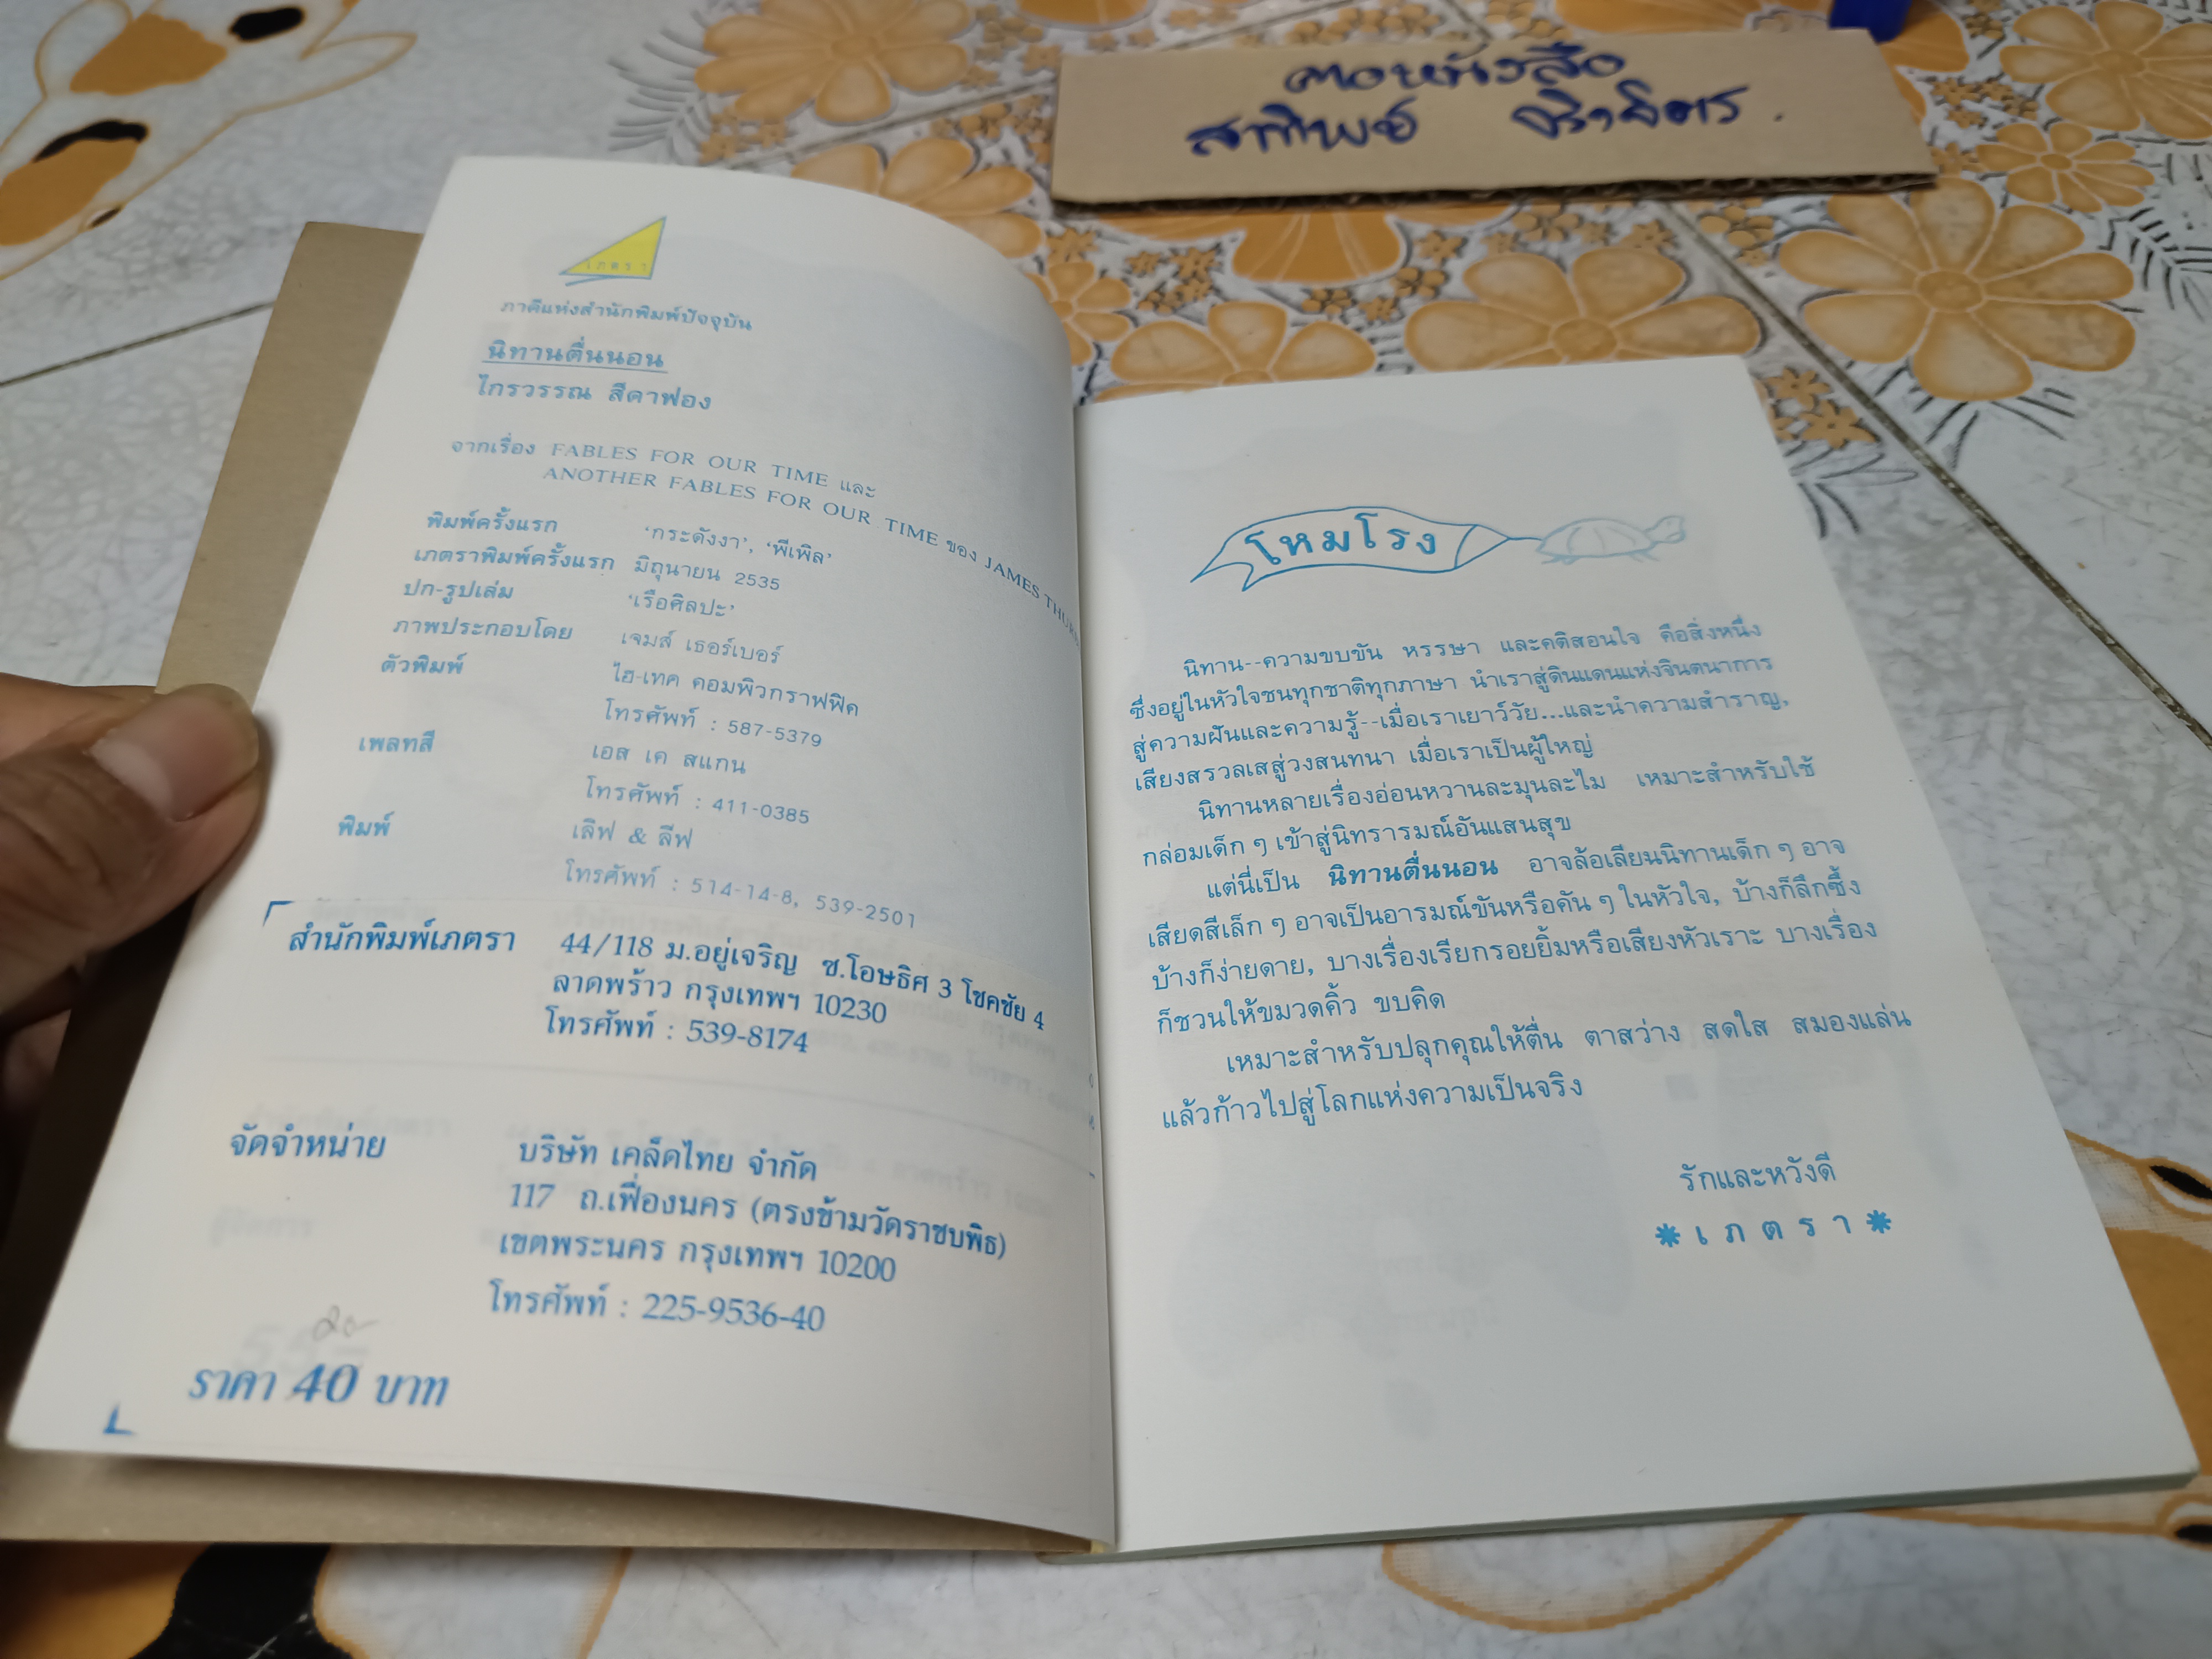 เภตรา
ภาคีแห่งสำนักพิมพ์ปัจจุบัน
นิทานตื่นนอน
ไกรวรรณ สีดาฟอง
จากเรื่อง FABLES FOR OUR TIME และ
ANOTHER FABLES FOR OUR TIME ของ JAMES
พิมพ์ครั้งแรก ‘กระดังงา’, ‘พีเพิล’
เภตราพิมพ์ครั้งแรก มิถุนายน 2535
ปก-รูปเล่ม ‘เรือศิลปะ’
ภาพประกอบโดย เจมส์ เธอร์เบอร์
ตัวพิมพ์ ไฮ-เทค คอมพิวกราฟฟิค
โทรศัพท์ : 587-5379
เพลทสี เอส เค สแกน
โทรศัพท์ : 411-0385
พิมพ์ เลิฟ & ลีฟ
โทรศัพท์ : 514-14-8, 539-2501
สำนักพิมพ์เภตรา 44/118 ม.อยู่เจริญ ซ.โอษธิศ 3 โชคชัย 4
ลาดพร้าว กรุงเทพฯ 10230
โทรศัพท์ : 539-8174
จัดจำหน่าย บริษัท เคล็ดไทย จำกัด
117 ถ.เฟื่องนคร (ตรงข้ามวัดราชบพิธ)
เขตพระนคร กรุงเทพฯ 10200
โทรศัพท์ : 225-9536-40
ราคา 40 บาท
โหมโรง
นิทาน--ความขบขัน หรรษา และคติสอนใจ คือสิ่งหนึ่ง
ซึ่งอยู่ในหัวใจชนทุกชาติทุกภาษา นำเราสู่ดินแดนแห่งจินตนาการ
สู่ความฝันและความรู้--เมื่อเราเยาว์วัย...และนำความสำราญ,
เสียงสรวลเสสู่วงสนทนา เมื่อเราเป็นผู้ใหญ่
นิทานหลายเรื่องอ่อนหวานละมุนละไม เหมาะสำหรับใช้
กล่อมเด็ก ๆ เข้าสู่นิทรารมณ์อันแสนสุข
แต่นี่เป็น นิทานตื่นนอน อาจล้อเลียนนิทานเด็ก ๆ อาจ
เสียดสีเล็ก ๆ อาจเป็นอารมณ์ขันหรือคัน ๆ ในหัวใจ, บ้างก็ลึกซึ้ง
บ้างก็ง่ายดาย, บางเรื่องเรียกรอยยิ้มหรือเสียงหัวเราะ บางเรื่อง
ก็ชวนให้ขมวดคิ้ว ขบคิด
เหมาะสำหรับปลุกคุณให้ตื่น ตาสว่าง สดใส สมองแล่น
แล้วก้าวไปสู่โลกแห่งความเป็นจริง
รักและหวังดี
* เ ภ ต ร า *